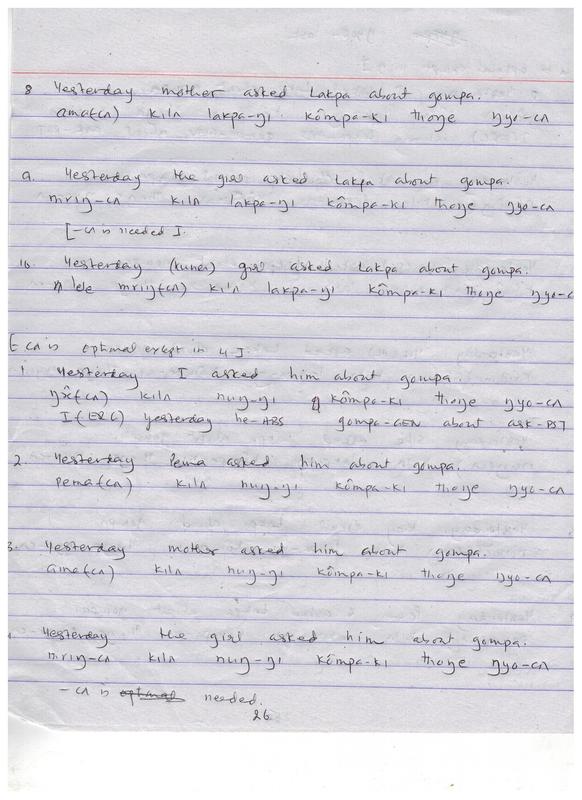 8 Yesterday mother asked Lakpa about gompa.
ama(cʌ) kilʌ lakpa-ŋı kômpa-kı thoŋe ŋyo-cʌ
9. Yesterday the girl asked Lakpa about gompa.
mrıŋ-cʌ kilʌ lakpa-ŋı kômpa-kı thoŋe ŋyo-cʌ
[-cʌ is needed].
10 Yesterday (kuner) girl asked Lakpa about gompa.
lele mrıŋ(cʌ) kilʌ lakpa-ŋı kômpa-kı thoŋe ŋyo-c
[cʌ is optional except in 4].
1 Yesterday I asked him about gompa.
(cʌ) kilʌ huŋ-ŋı kômpa-kı thoŋe ŋyo-cʌ
I(ERG) yesterday he-ABS gompa-GEN about ask-PST
2. Yesterday Pema asked him about gompa.
pema(cʌ) kilʌ huŋ-ŋı kômpa-kı thoŋe ŋyo-cʌ
3. Yesterday mother asked him about gompa.
ama(cʌ) kilʌ huŋ-ŋı kômpa-kı thoŋe ŋyo-cʌ
Yesterday the girl asked him about gompa.
mrıŋ-cʌ kilʌ huŋ-ŋı kômpa-kı thoŋe ŋyo-cʌ
-cʌ is optional needed.
26